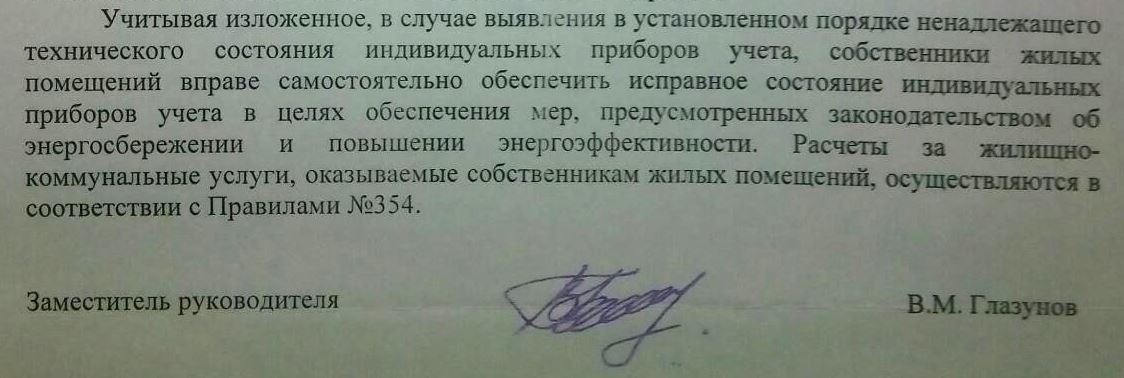 Учитывая изложенное, в случае выявления в установленном порядке ненадлежащего
технического состояния индивидуальных приборов учета, собственники жилых
помещений вправе самостоятельно обеспечить исправное состояние индивидуальных
приборов учета в целях обеспечения мер, предусмотренных законодательством об
энергосбережении и повышении энергоэффективности. Расчеты за жилищно-
коммунальные услуги, оказываемые собственникам жилых помещений, осуществляются в
соответствии с Правилами №354.
Заместитель руководителя В.М. Глазунов